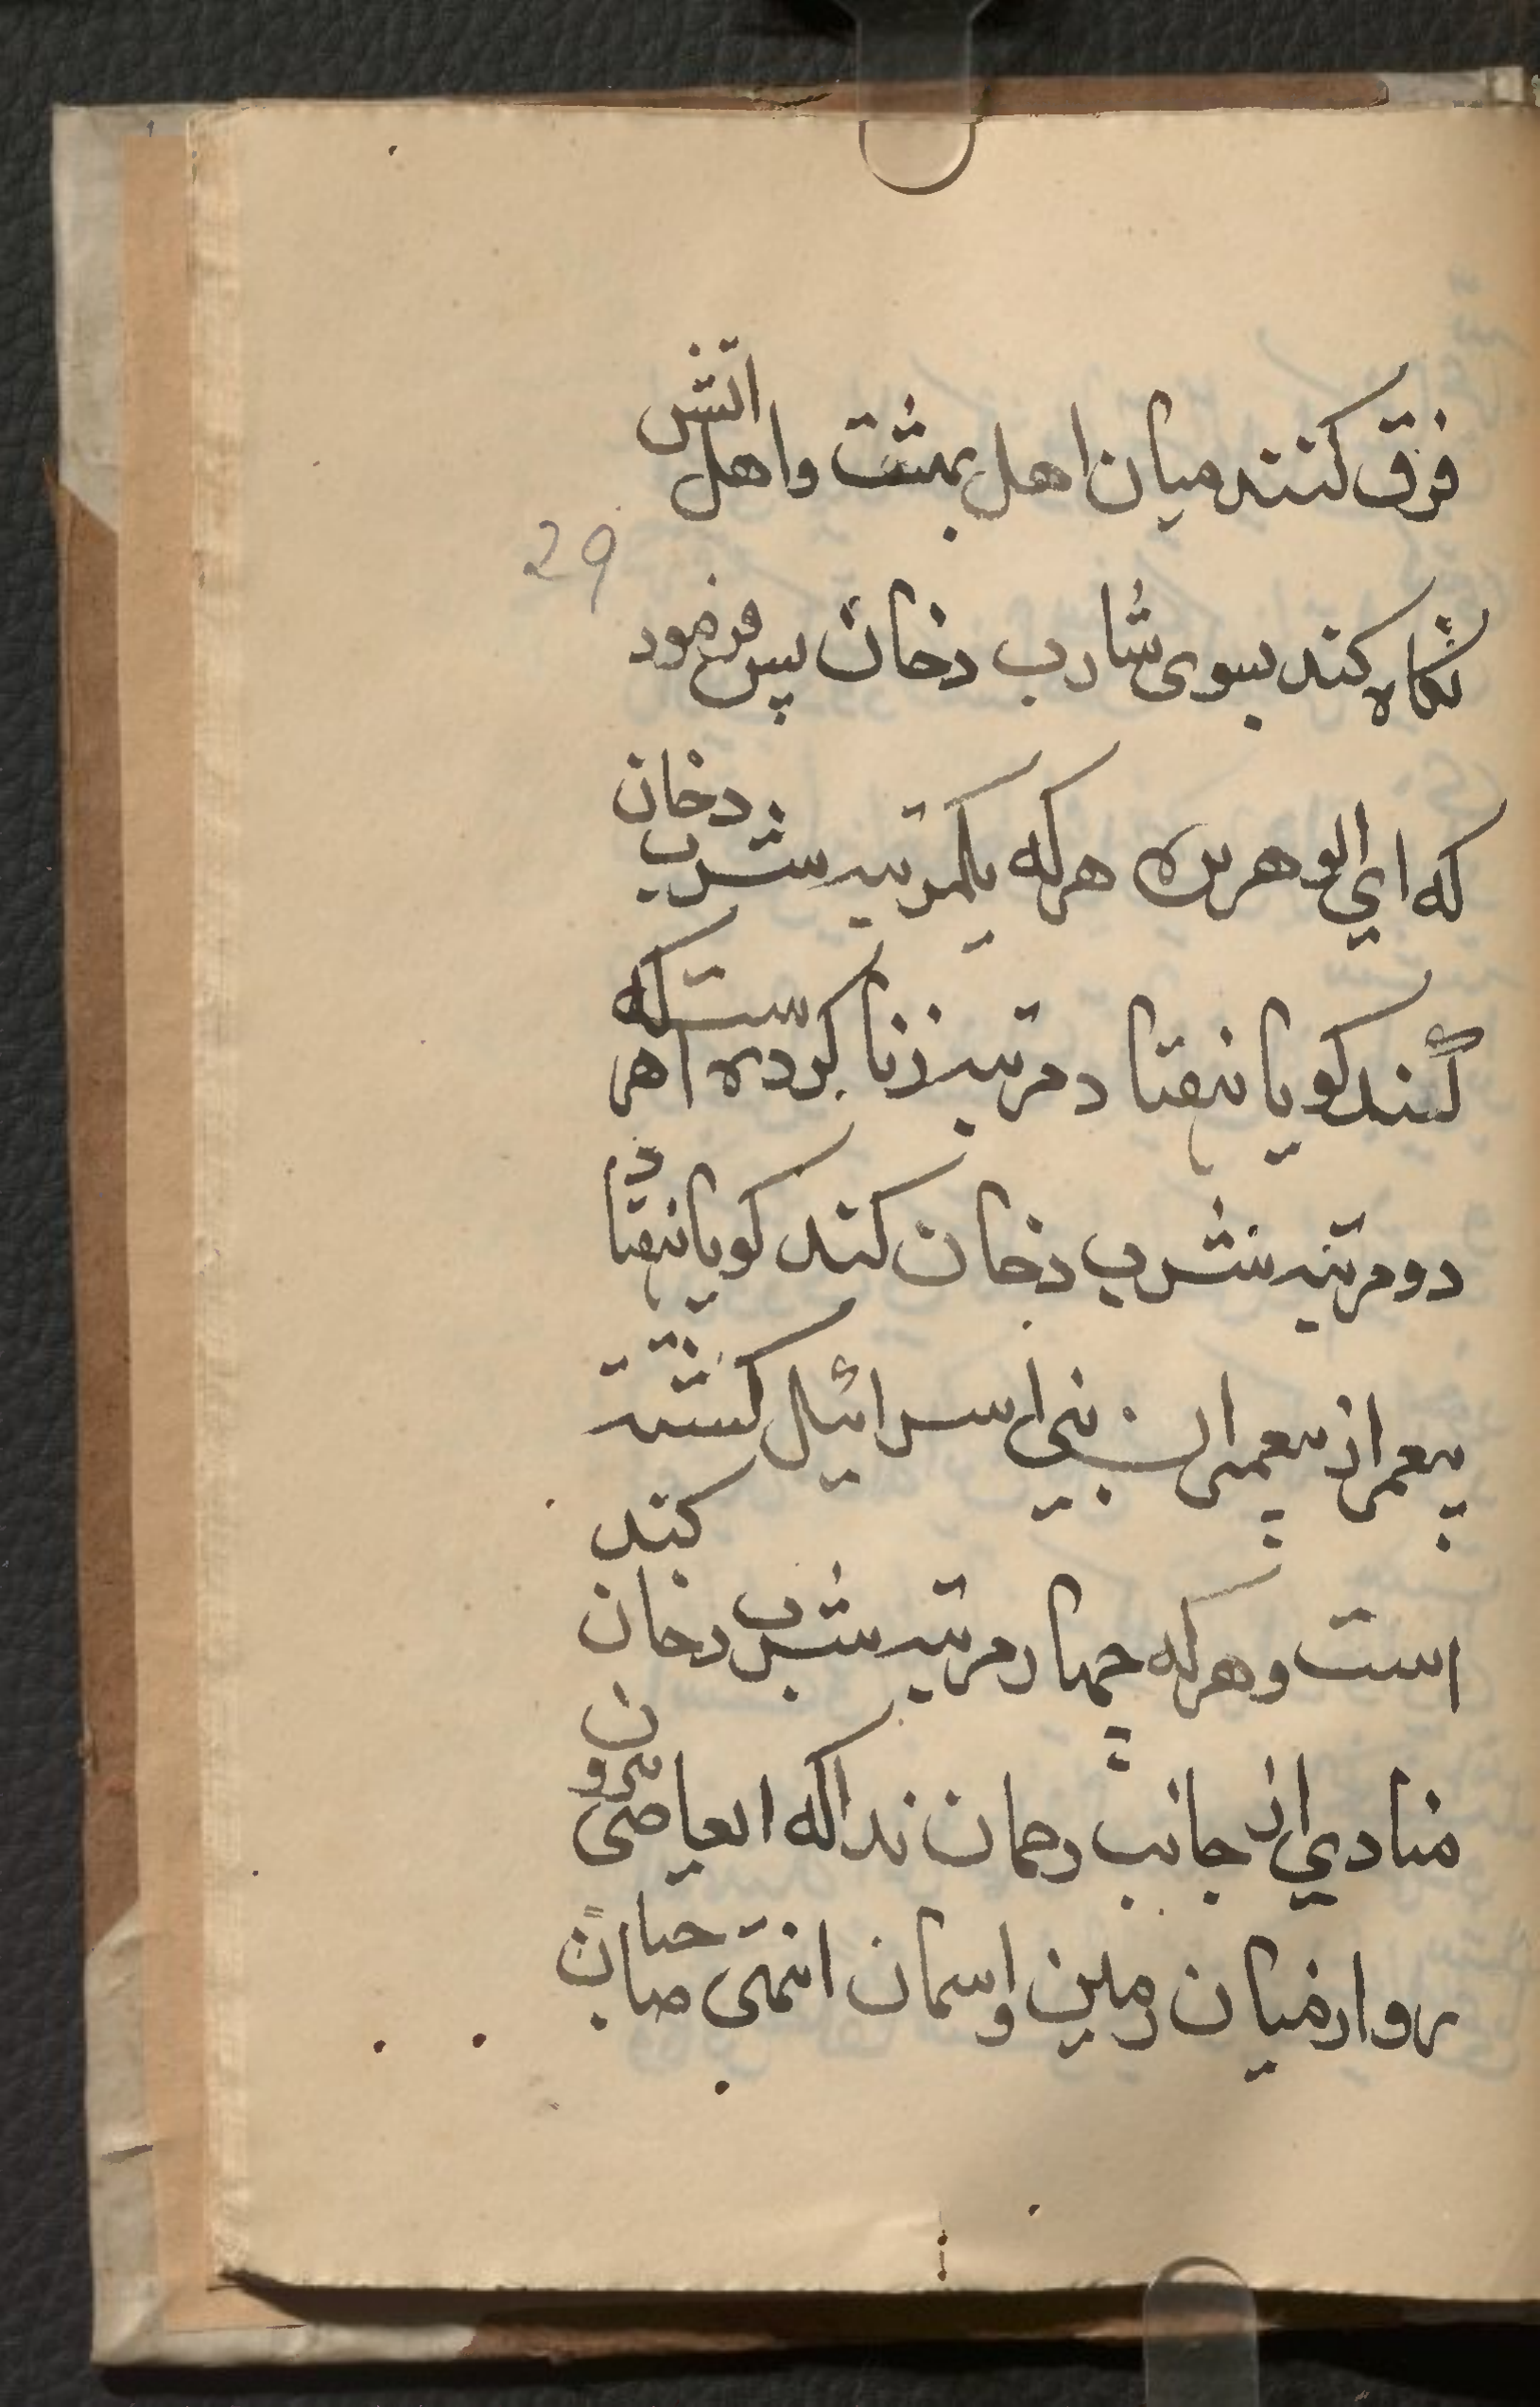 فرق کنند میان اهل بهشت واهل اتش
29
نگاه کند بسوی شارب دخان پس فرمود
که ای ابو هریره هرکه یکمرتبه شرب دخان
کند کویا هفتا دمرتبه زنا کرده است هرکه
دومرتبه شرب دخان کند کویا هفتاد
پیغمبر از پیغمبران بنی اسرائیل کشته
است وهرکه چهار مرتبه شرب دخان کند
منادی از جانب رحمان ندا که ایعاصی بیرون
رو از میان زمین واسمان انتهی